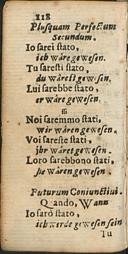 118
Plusquam Perfectum
Secundum.
Io sarei stato,
ich wäre gewesen.
Tu saresti stato,
du wärest gewesen.
Lui sarebbe stato,
er wäre gewesen.
Noi saremmo stati,
wir wären gewesen.
Voi sareste stati,
ihr wäret gewesen.
Loro sarebbono stati,
sie wären gewesen.
Futurum Coniunctivi.
Quando, Wann
Io sarò stato,
ich werde gewesen sein
Tu